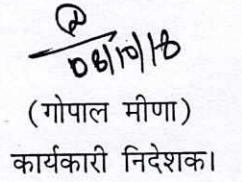 08/10/18
(गोपाल मीणा)
कार्यकारी निदेशक।